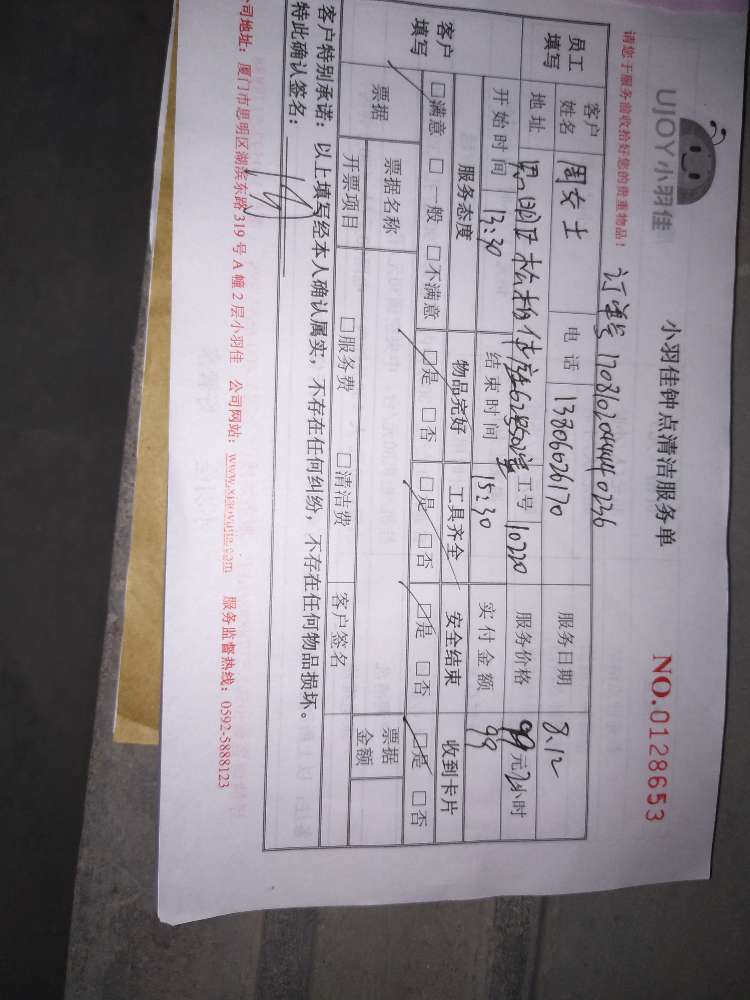 UJOY小羽佳
小羽佳钟点清洁服务单
NO.0128653
请您于服务前收拾好您的贵重物品！
订单号
员工填写 客户姓名 周女士 电话 13306026170 服务日期 8.12
地址 思明区松柏 工号 10220 服务价格 99元2小时
开始时间 13:30 结束时间 15:30 实付金额 99
客户填写 服务态度 物品完好 工具齐全 安全结束 收到卡片
□满意 □一般 □不满意 □是 □否 □是 □否 □是 □否 □是 □否
票据 票据名称 票据金额
开票项目 □服务费 □清洁费 客户签名
客户特别承诺：以上填写经本人确认属实，不存在任何纠纷，不存在任何物品损坏。
特此确认签名：
司地址：厦门市思明区湖滨东路319号A幢2层小羽佳 公司网站：www.xiaoyujia.com 服务监督热线：0592-5888123